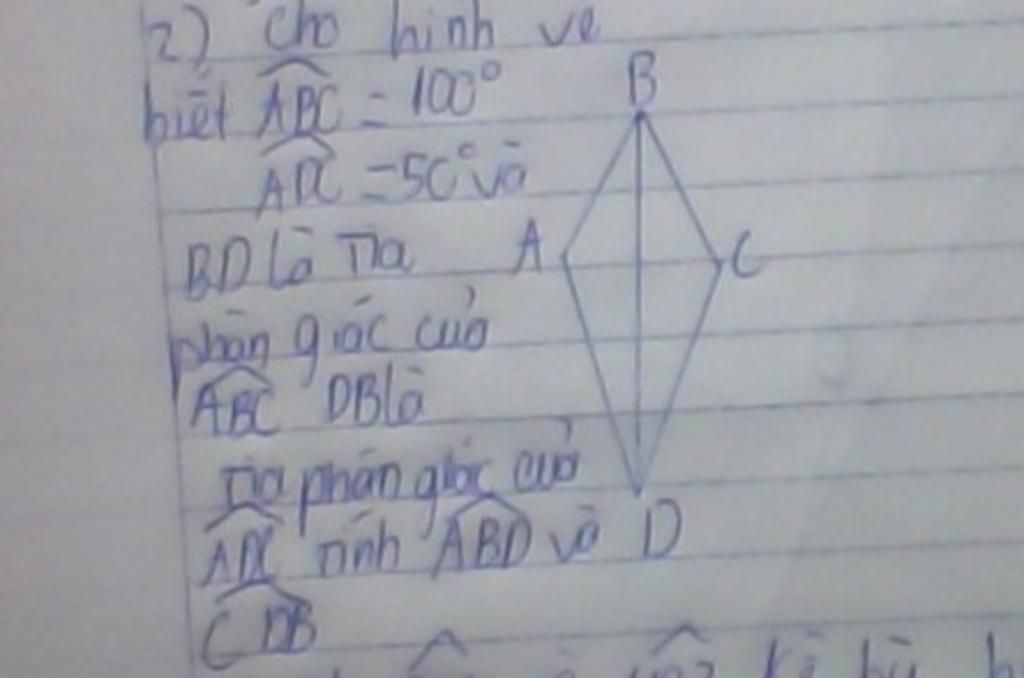 2) Cho hình vẽ
biết ABC = 100°
ADC = 50° và
B
A
C
BD là Tia
phân giác của
ABC DB là
Tia phân giác của
ADC tính ABD và
D
CDB